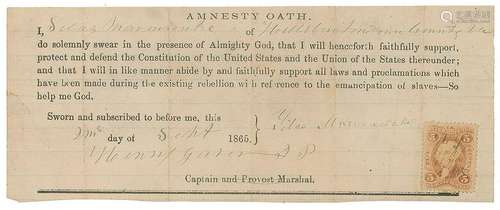 AMNESTY OATH.
I, of County, Va
do solemnly swear in the presence of Almighty God, that I will henceforth faithfully support,
protect and defend the Constitution of the United States and the Union of the States thereunder;
and that I will in like manner abide by and faithfully support all laws and proclamations which
have been made during the existing rebellion with reference to the emancipation of slaves—So
help me God.
Sworn and subscribed to before me, this
day of Sept 1865.
Henry
Captain and Provost Marshal.
5 5